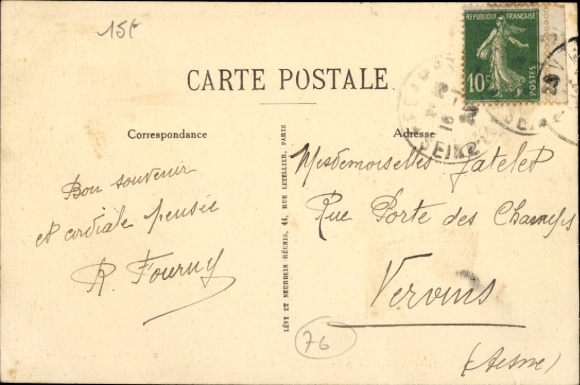 15f
REPUBLIQUE FRANÇAISE
10c
POSTES
CARTE POSTALE
Correspondance
Adresse
Bon souvenir
et cordiale pensée
R. Fourny
LÉVY ET NEURDEIN RÉUNIS, 44, RUE LETELLIER, PARIS
Mesdemoiselles
Rue Porte des Champs
Vervins
(Aisne)
76